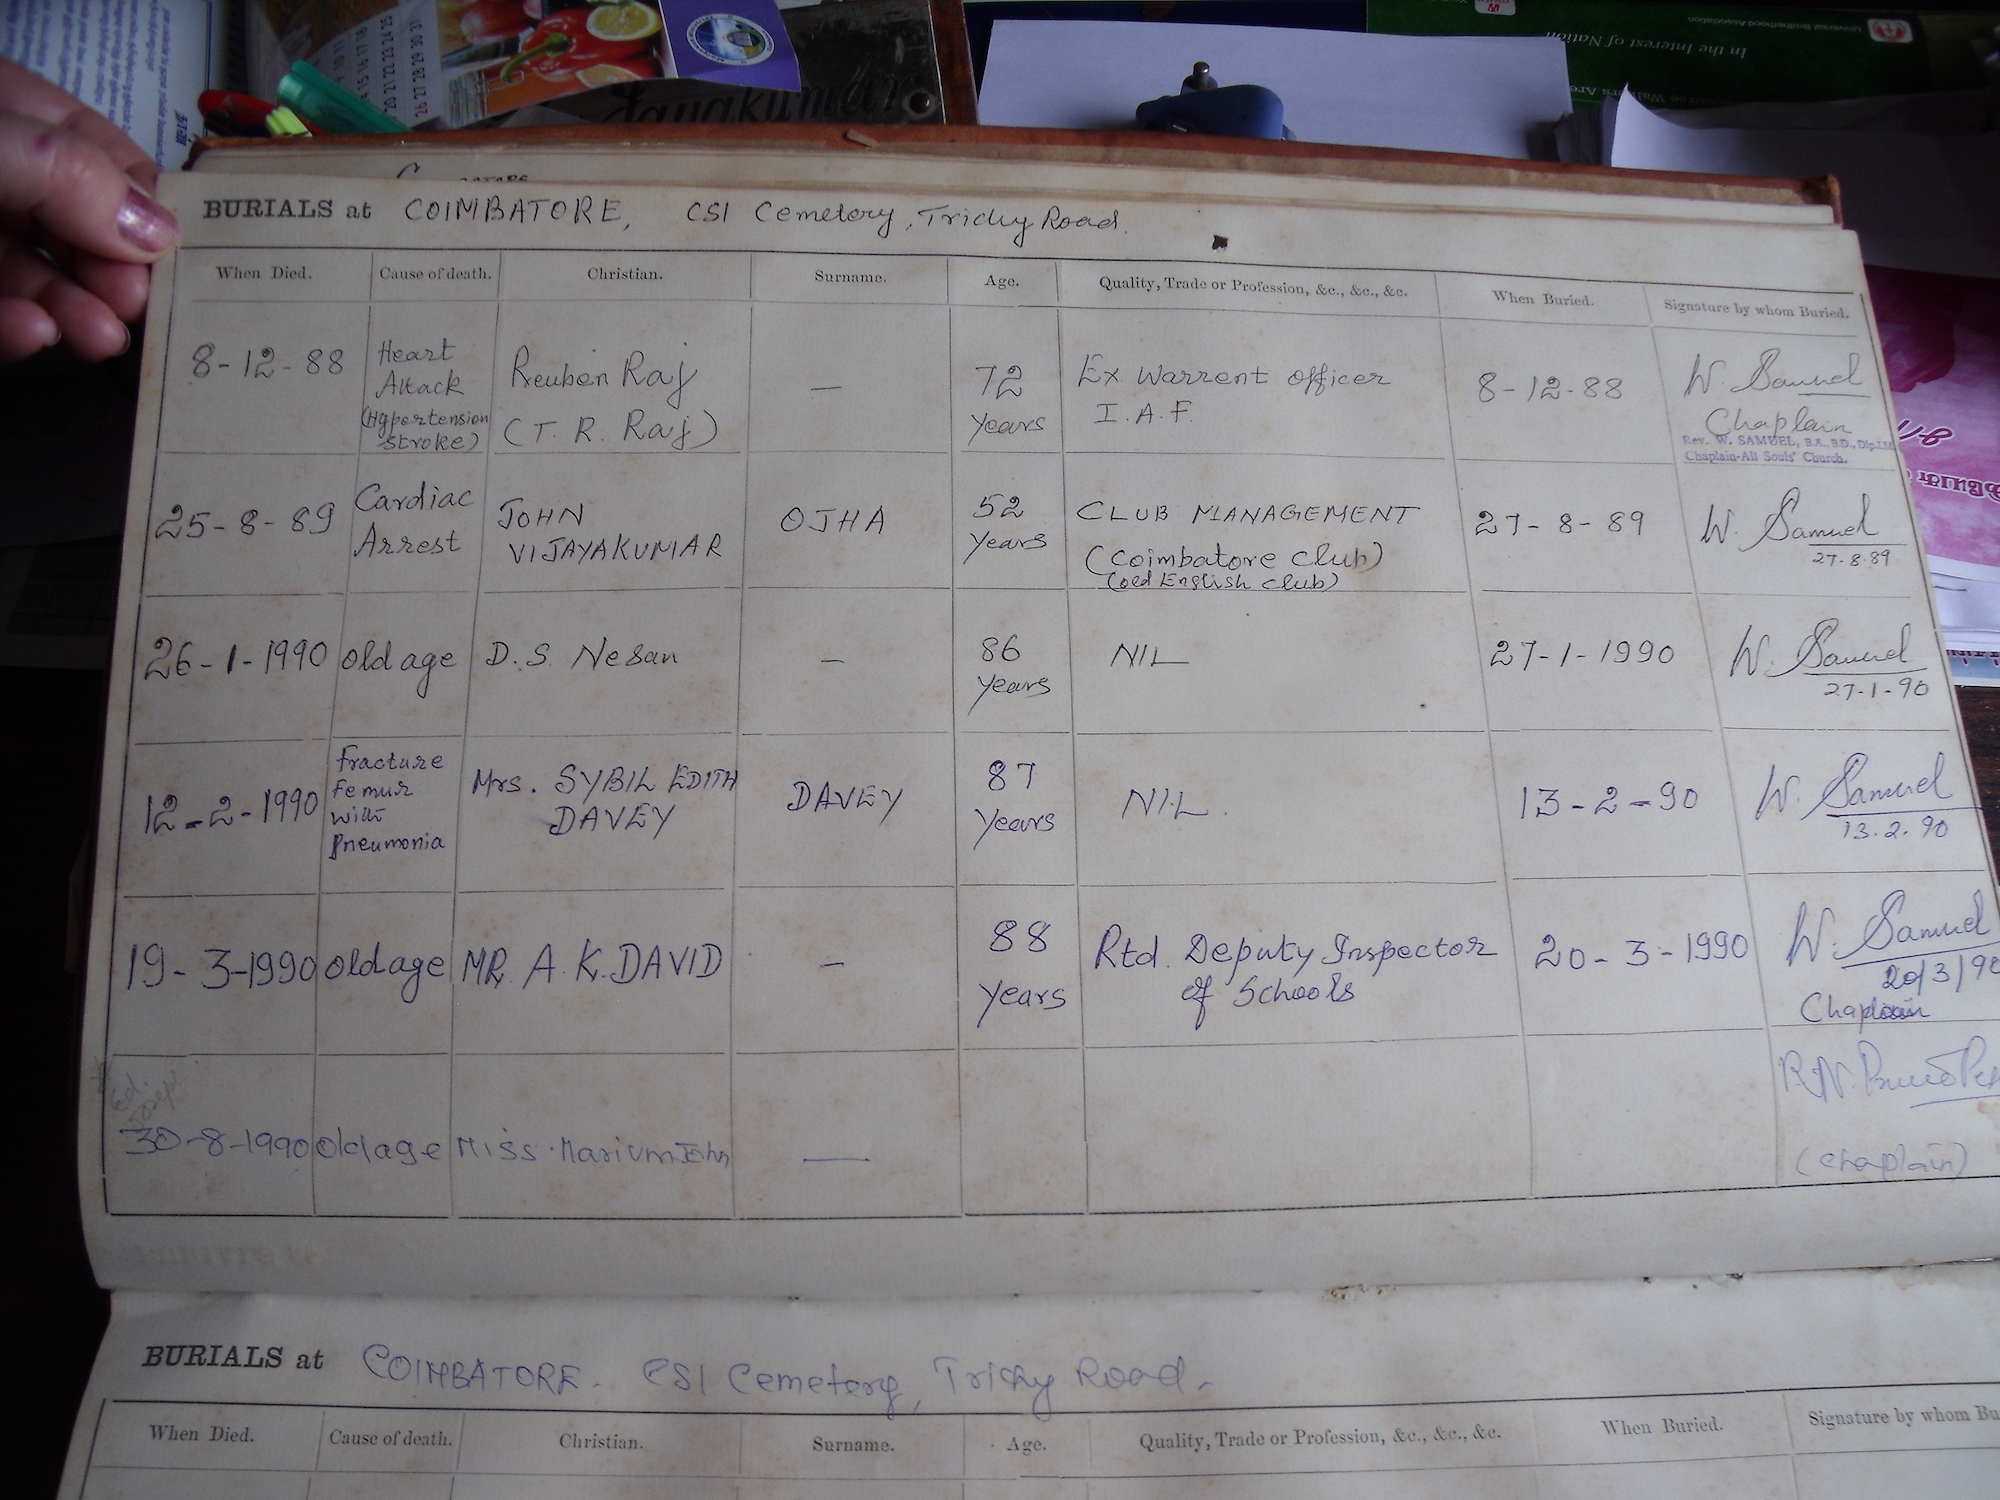 Jayakumar
In the Interest of Nation
Universal Brotherhood Association
BURIALS at COIMBATORE, CSI Cemetery, Trichy Road.
When Died. Cause of death. Christian. Surname. Age. Quality, Trade or Profession, &c., &c., &c. When Buried. Signature by whom Buried.
8-12-88 Heart Attack (Hypertension Stroke) Reuben Raj (T. R. Raj) — 72 years Ex Warrent officer I.A.F. 8-12-88 W. Samuel Chaplain
Rev. W. SAMUEL, B.A., B.D., Dip.I.M
Chaplain-All Souls' Church.
25-8-89 Cardiac Arrest JOHN VIJAYAKUMAR OJHA 52 years CLUB MANAGEMENT (Coimbatore Club) (old English club) 27-8-89 W. Samuel 27.8.89
26-1-1990 old age D.S. Nesan — 86 years NIL 27-1-1990 W. Samuel 27-1-90
12-2-1990 Fracture Femur with Pneumonia Mrs. SYBIL EDITH DAVEY DAVEY 87 years NIL. 13-2-90 W. Samuel 13.2.90
19-3-1990 old age MR. A. K. DAVID — 88 years Rtd. Deputy Inspector of Schools 20-3-1990 W. Samuel 20/3/90 Chaplain
30-8-1990 old age Miss. Marium John — R.N. (Chaplain)
BURIALS at COIMBATORE. CSI Cemetery, Trichy Road.
When Died. Cause of death. Christian. Surname. Age. Quality, Trade or Profession, &c., &c., &c. When Buried. Signature by whom Bu